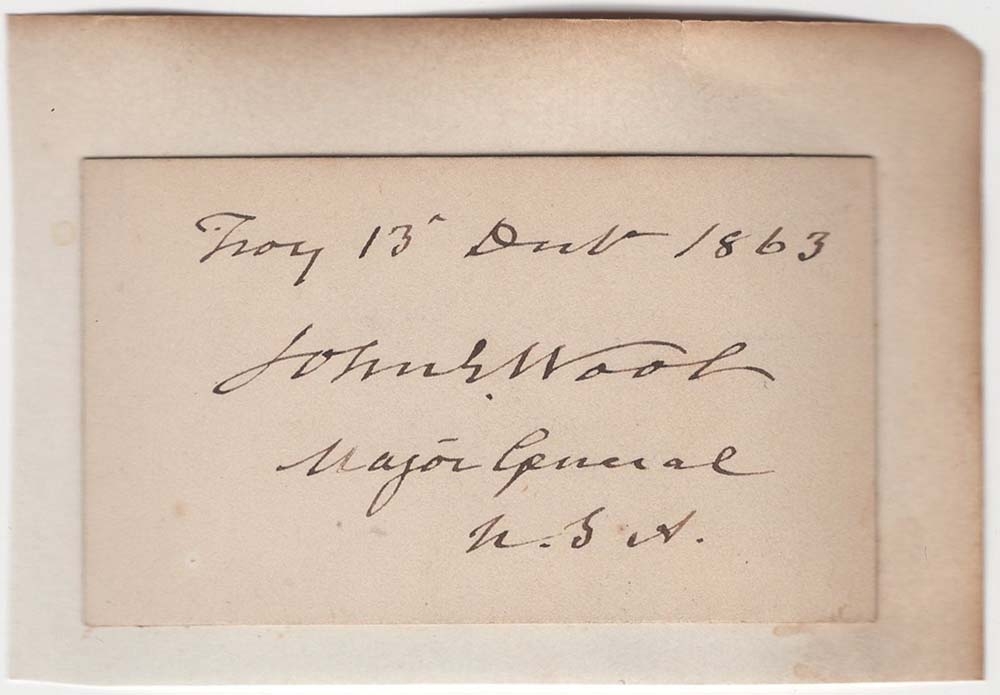 Troy 13 1863
John E. Wool
Major General
U. S A.